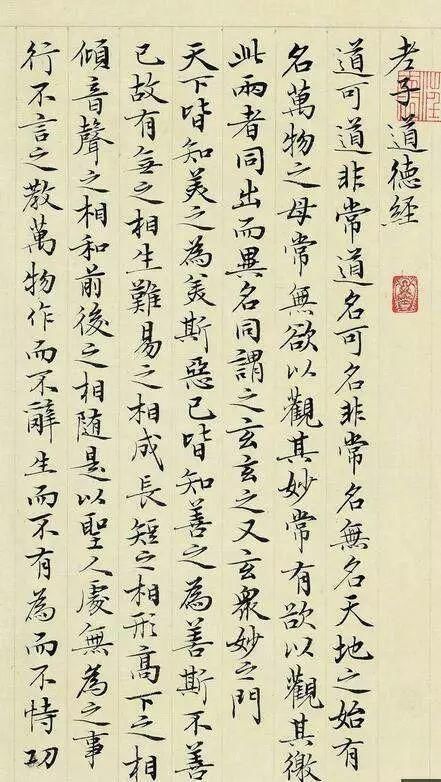 老子道德经
道可道非常道名可名非常名無名天地之始有
名萬物之母常無欲以觀其妙常有欲以觀其徼
此兩者同出而異名同謂之玄玄之又玄衆妙之門
天下皆知美之為美斯惡已皆知善之為善斯不善
已故有無之相生難易之相成長短之相形高下之相
傾音聲之相和前後之相随是以聖人處無為之事
行不言之教萬物作而不辭生而不有為而不恃功